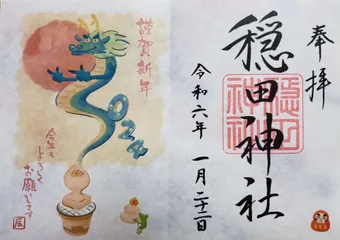 謹賀新年
2024
今年も
よろしく
お願いします
辰
奉拝
穏田神社
令和六年 一月二十二日